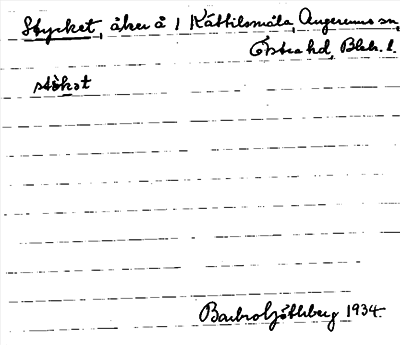 Stycket, åker å 1 Kättilsmåla, Augerums sn,
Östra hd, Blek. l.
stökət
Barbro Göthberg 1934.